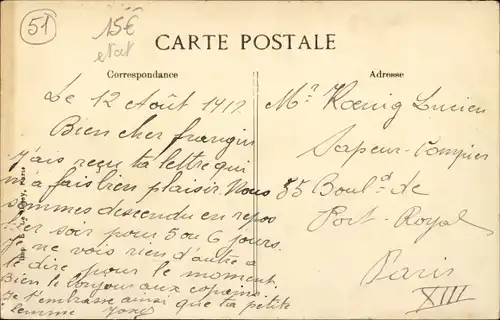 51
15€
CARTE POSTALE
Correspondance
Adresse
Le 12 Août 1917
Bien cher frangin
J'ais reçu ta lettre qui
m'a fais bien plaisir. Nous
sommes descendu en repos
hier soir pour 5 ou 6 jours.
Je ne vois rien d'autre a
te dire pour le moment.
Bien le bonjour aux copains.
Je t'embrasse ainsi que ta petite
femme
Mr Kœnig Lucien
Sapeur-Pompier
55 Boul.d de
Port-Royal
Paris
XIII